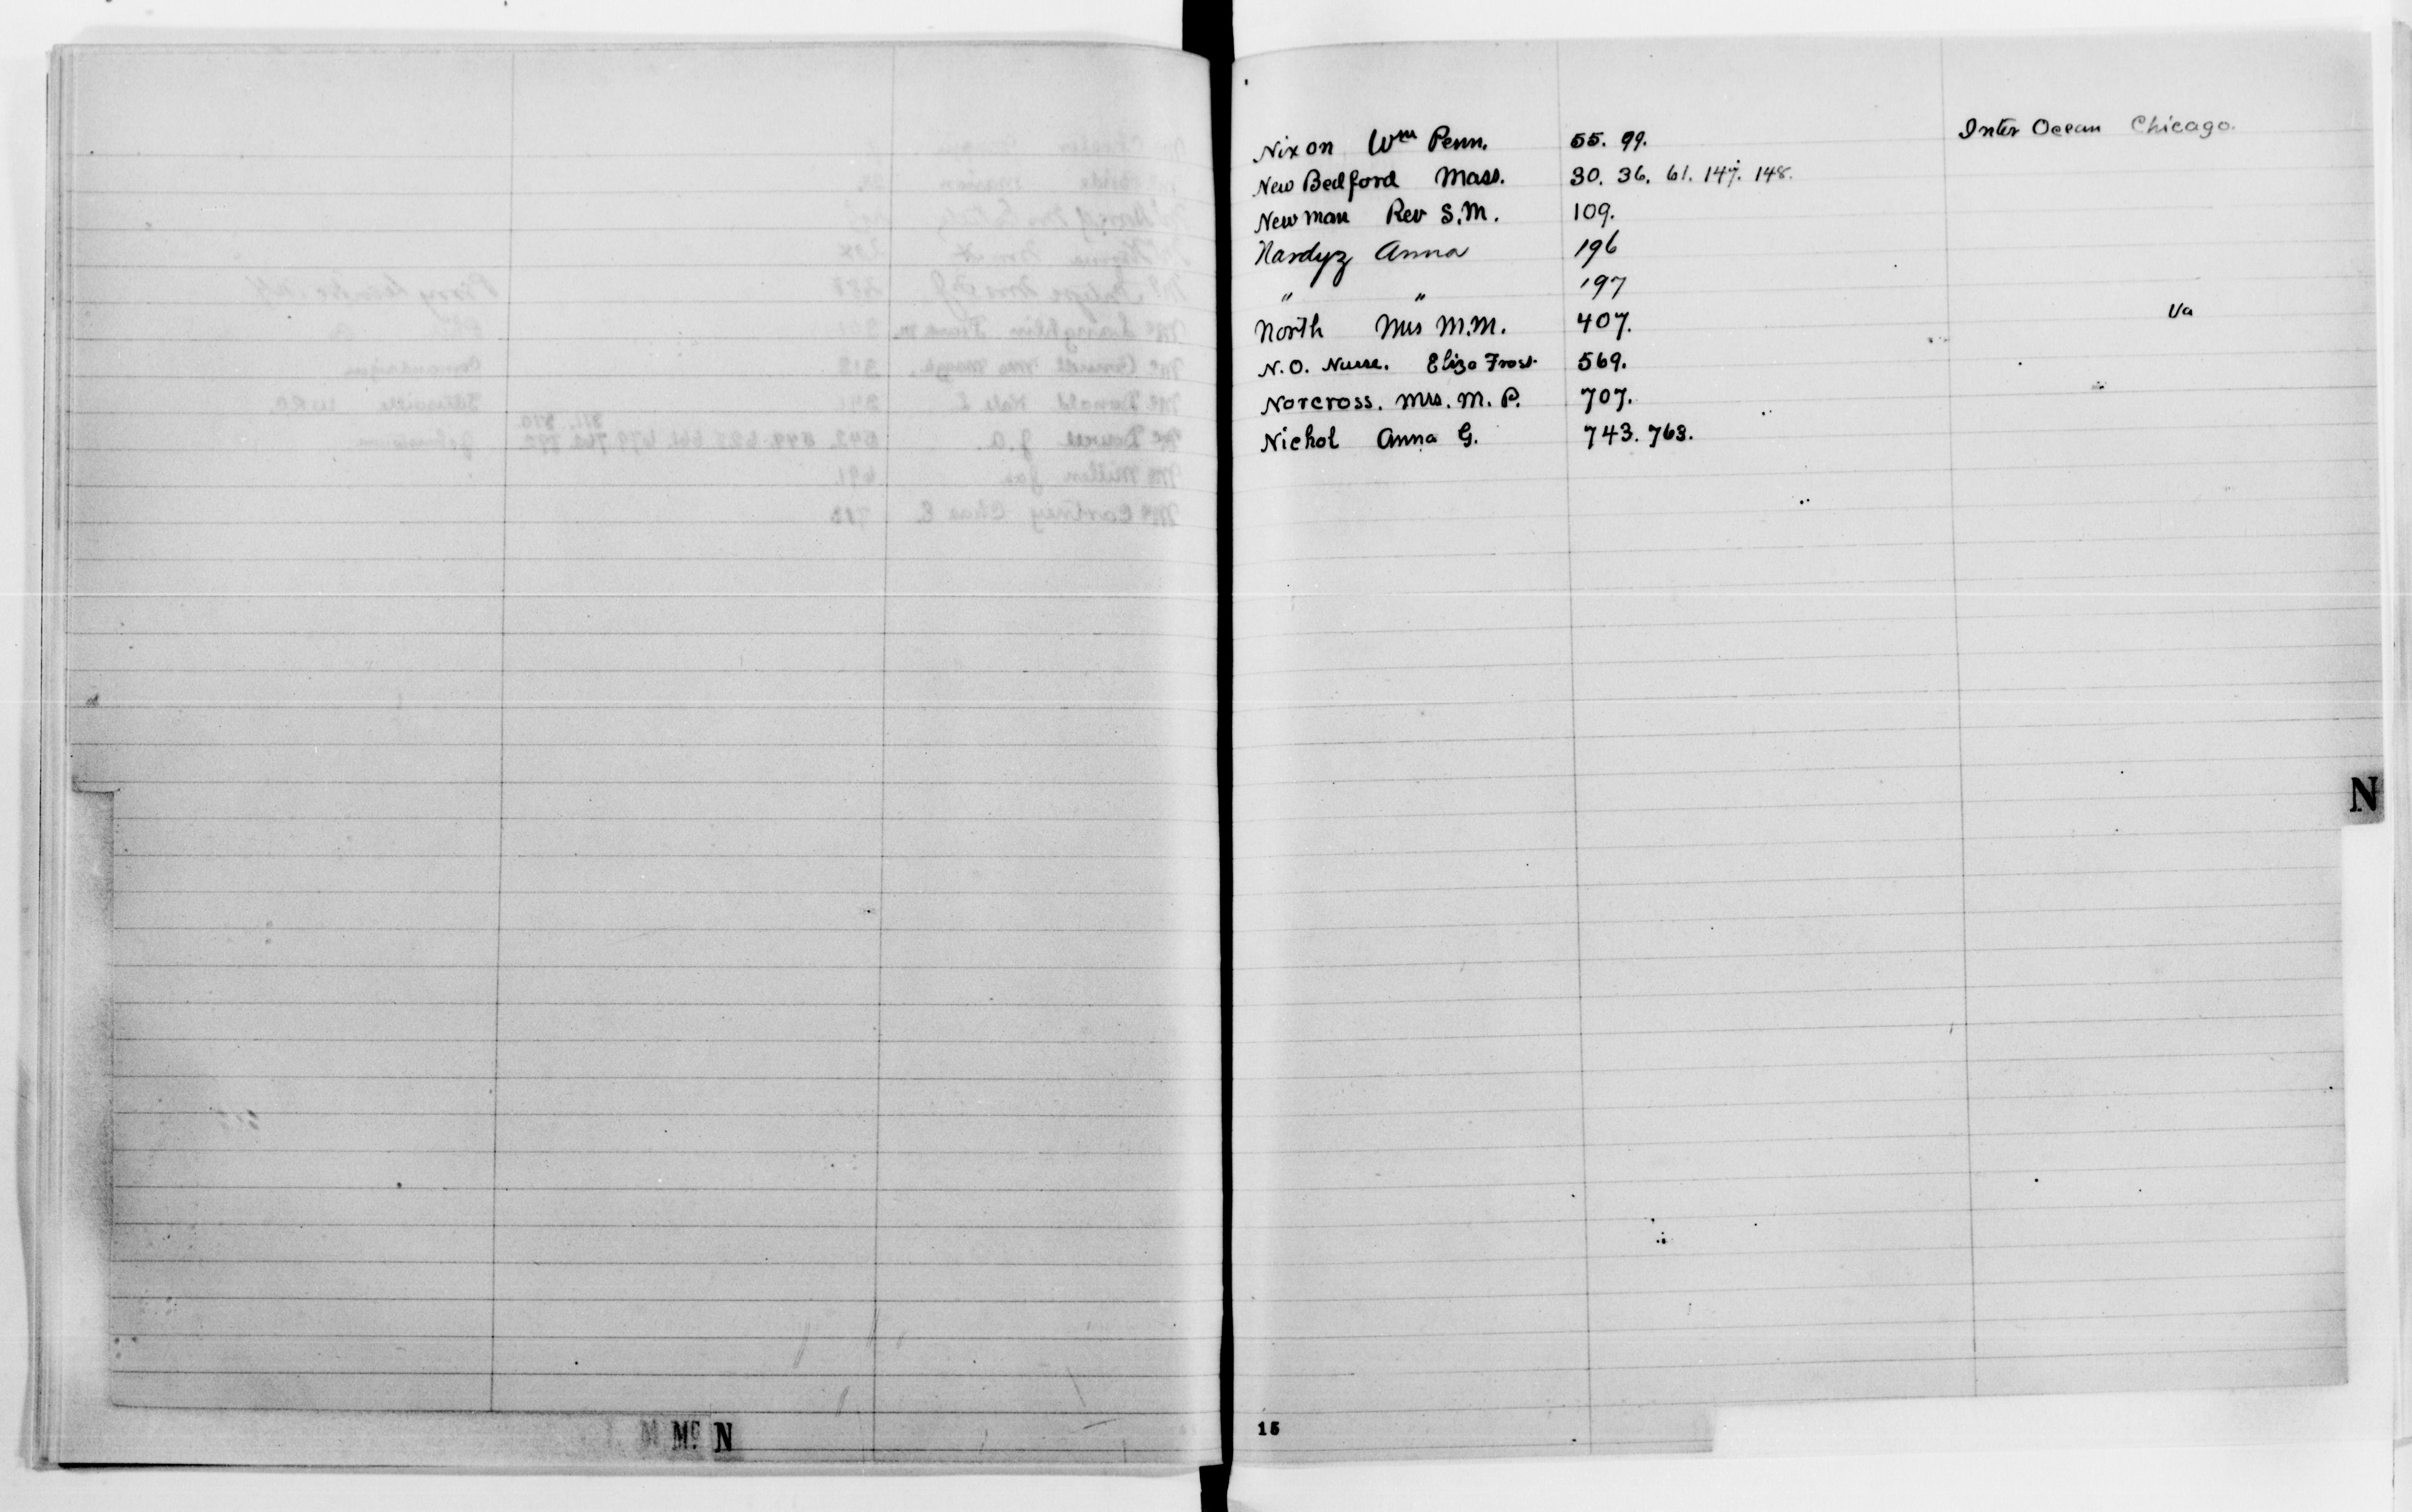 Nixon Wm Penn. 55. 99. Inter Ocean Chicago.
New Bedford Mass. 30. 36. 61. 147. 148.
Newman Rev S.M. 109.
Nardyz Anna 196
" " 197
North Mrs M.M. 407. Va
N.O. Nurse. Eliza Frost. 569.
Norcross. Mrs. M. P. 707.
Nichol Anna G. 743. 763.
N
M Mc N
15